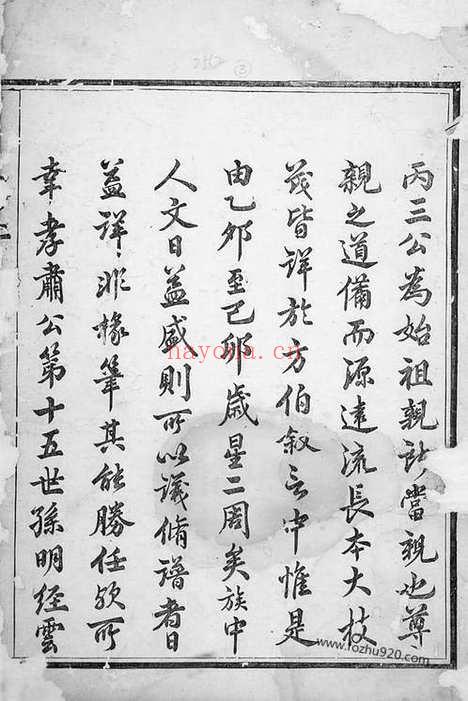 丙三公為始祖親所當親也尊〻
親之道備而源遠流長本大枝
茂皆詳於方伯叙言中惟是
由乙卯至己卯歲星二周矣族中
人文日益盛則所以議脩譜者日
益詳〻非椽筆其能勝任歟所
幸孝肅公第十五世孫明經雲
www.fozhu920.com